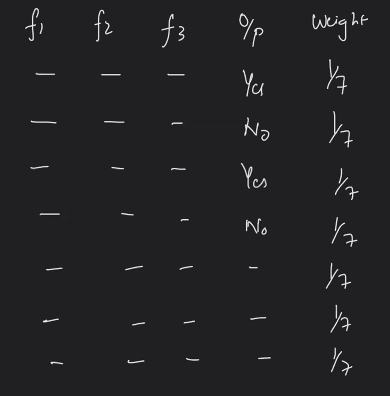 f1 f2 f3 O/P Weight
— — — Yes 1/7
— — - No 1/7
— - — Yes 1/7
— - - No 1/7
— — - - 1/7
— - - — 1/7
- — - — 1/7